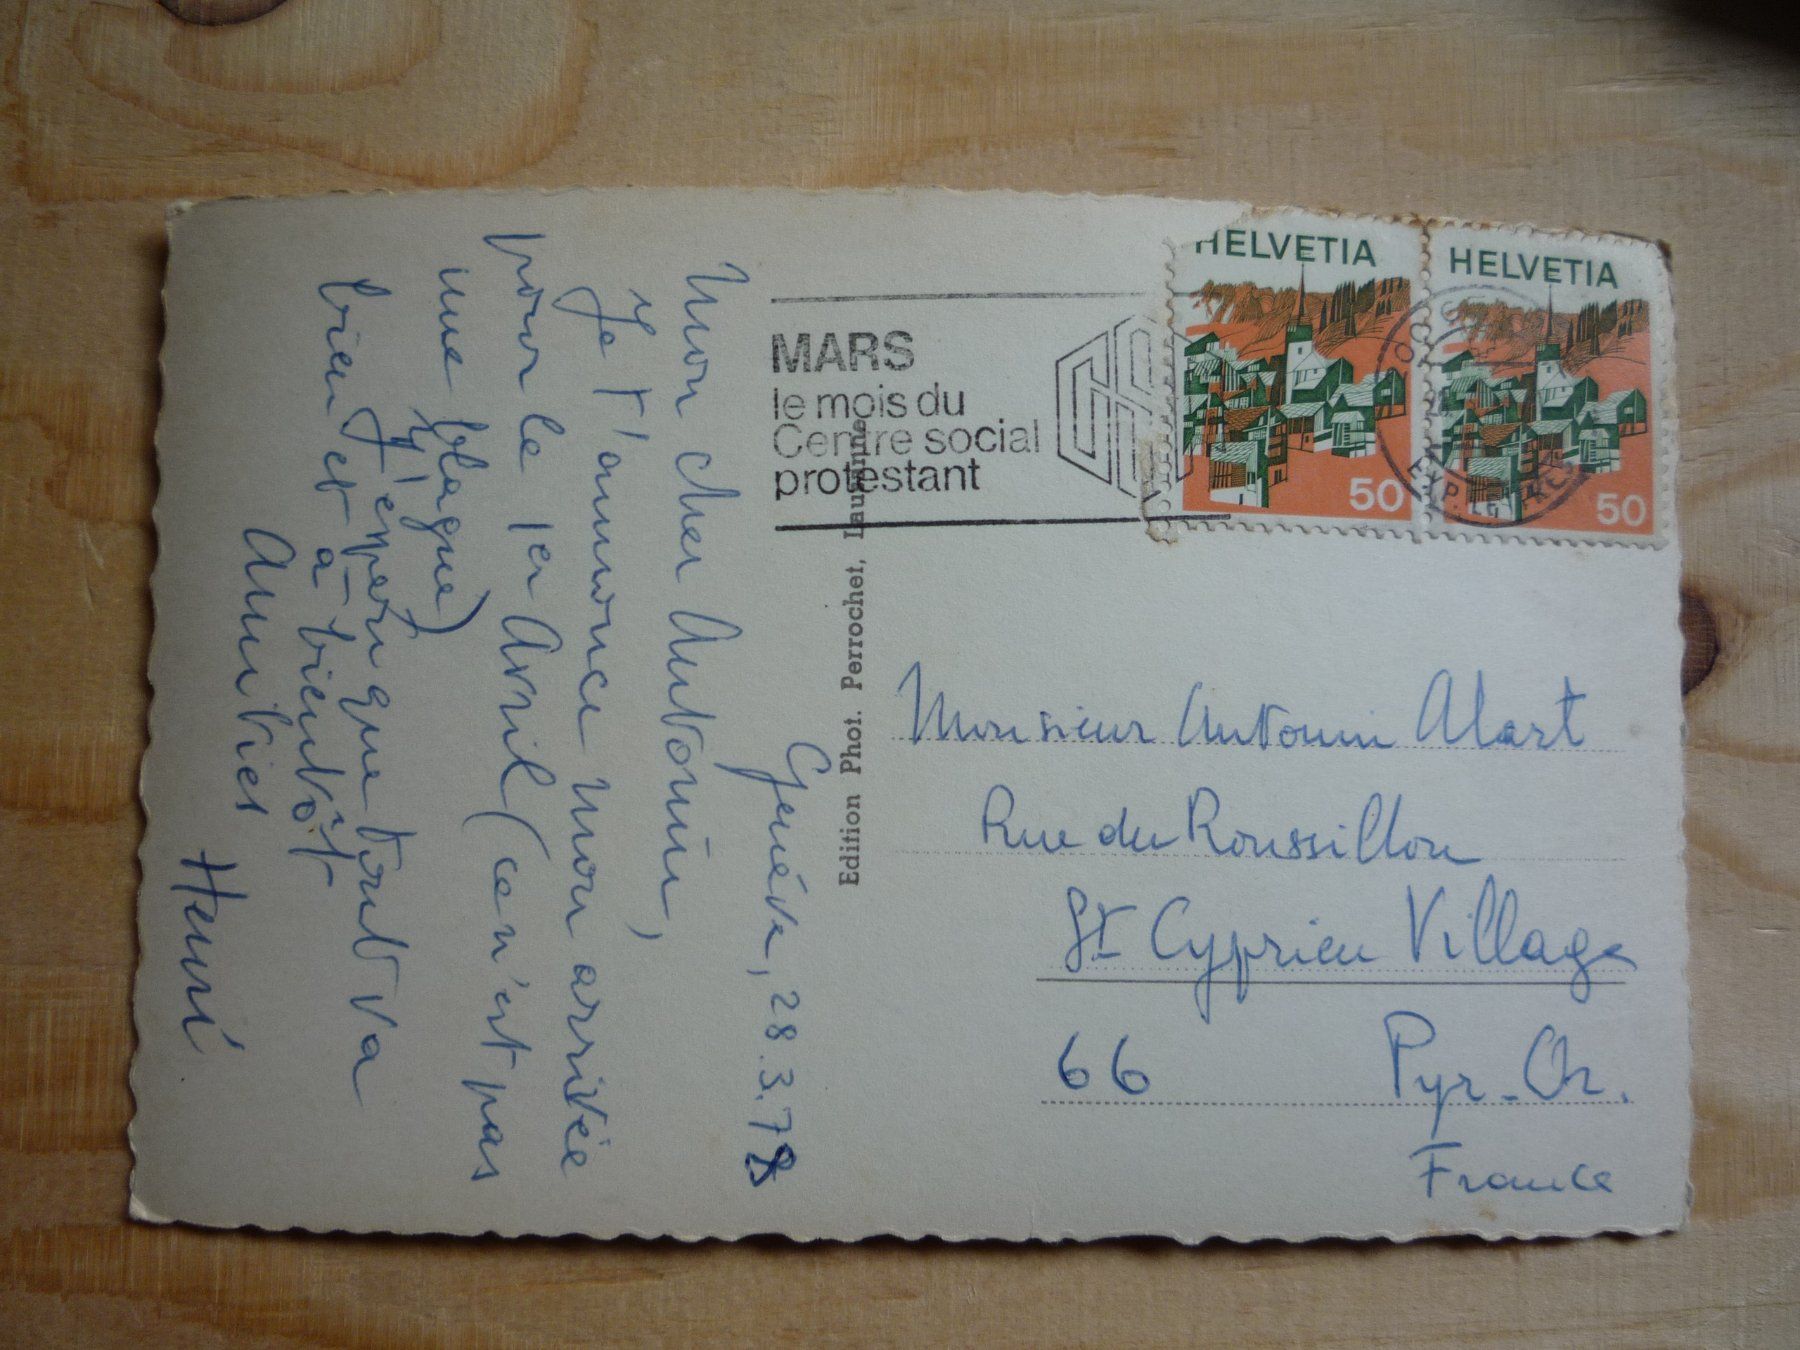 Genève, 28.3.78
Mon cher Antonin,
Je t'annonce mon arrivée
pour le 1er Avril (ce n'est pas
une blague)
J'espère que tout va
bien et à bientôt
Amitiés
Henri
Edition Phot. Perrochet, Lausanne
MARS
le mois du
Centre social
protestant
CSP
HELVETIA
50
HELVETIA
50
Monsieur Antonin Alart
Rue du Roussillon
St Cyprien Village
66 Pyr-Or.
France